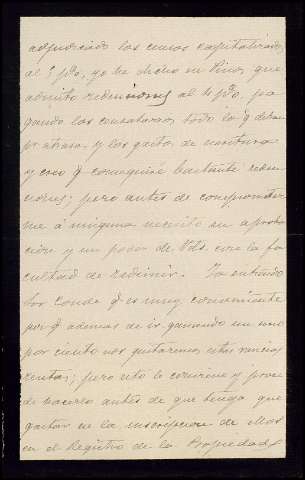 adjudicado los censos capitalizados
al 5 pº/o, yo he dicho en Pino, que
admito redenciones al 4 pº/o, pa
gando los censatarios todo lo q̃ deban
pr atraso y los gastos de escritura
y creo q̃ conseguiré bastante reden
ciones; pero antes de comprometer
me á ninguna necesito su aproba
ción y un poder de Vds. con la fa
cultad de redimir. Yo entiendo
Conde q̃ es muy conveniente
por q̃ ademas de ir ganando un uno
por ciento nos quitaremos estas rancias
rentas; pero esto le conviene y puede
de hacerlo antes de que tenga que
gastar en la inscripcion de ellos
en el Registro de la Propiedad